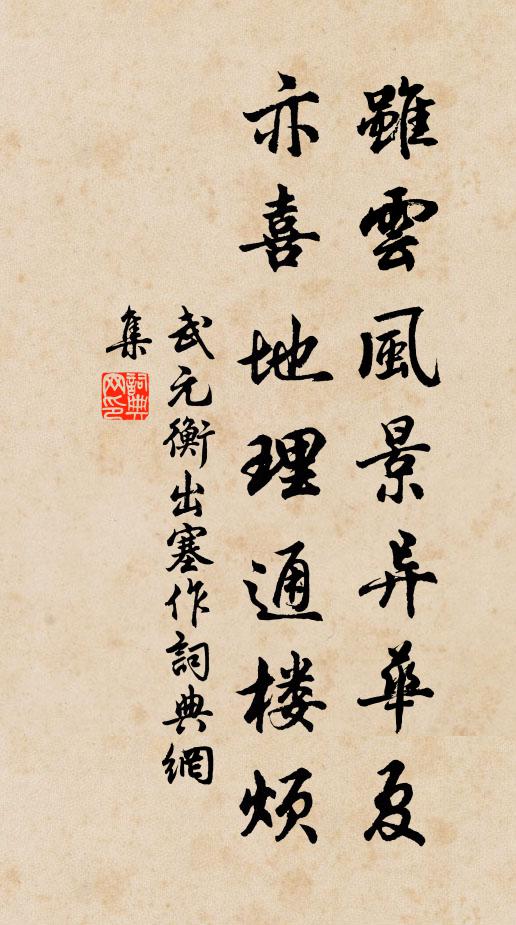 雖雲風景异華夏
亦喜地理通楼煩
武元衡出塞作詞典網
集
詞典
网印